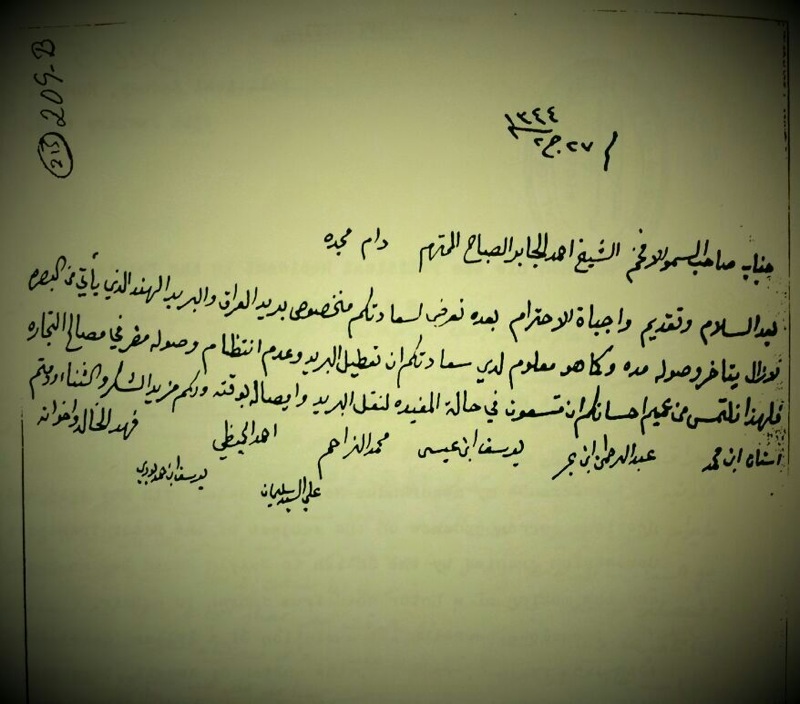 209-B
213
١٣٤٤
٢٧ ج ٢
جناب صاحب السمو الافخم الشيخ احمد الجابر الصباح المحترم دام مجده
بعد السلام وتقديم واجباة الاحترام بعده نعرض لسعادتكم منخصوص بريد العراق والبريد الهند الذي يأتي من البصره
لم يزال يتاخر وصوله مده وكما هو معلوم لدي سعادتكم ان تعطيل البريد وعدم انتظام وصوله مضر في مصالح التجاره
فلهذا نلتمس من عميم احسانكم ان تسعون في حالة المفيده لنقل البريد وايصاله بوقته ولكم مزيد الشكر والثناء ودمتم
ابن محمد عبد الرحمن ابن بحر يوسف ابن عيسى محمد المزاحم احمد فهد الخالد واخوانه
علي السيد سليمان يوسف ابن